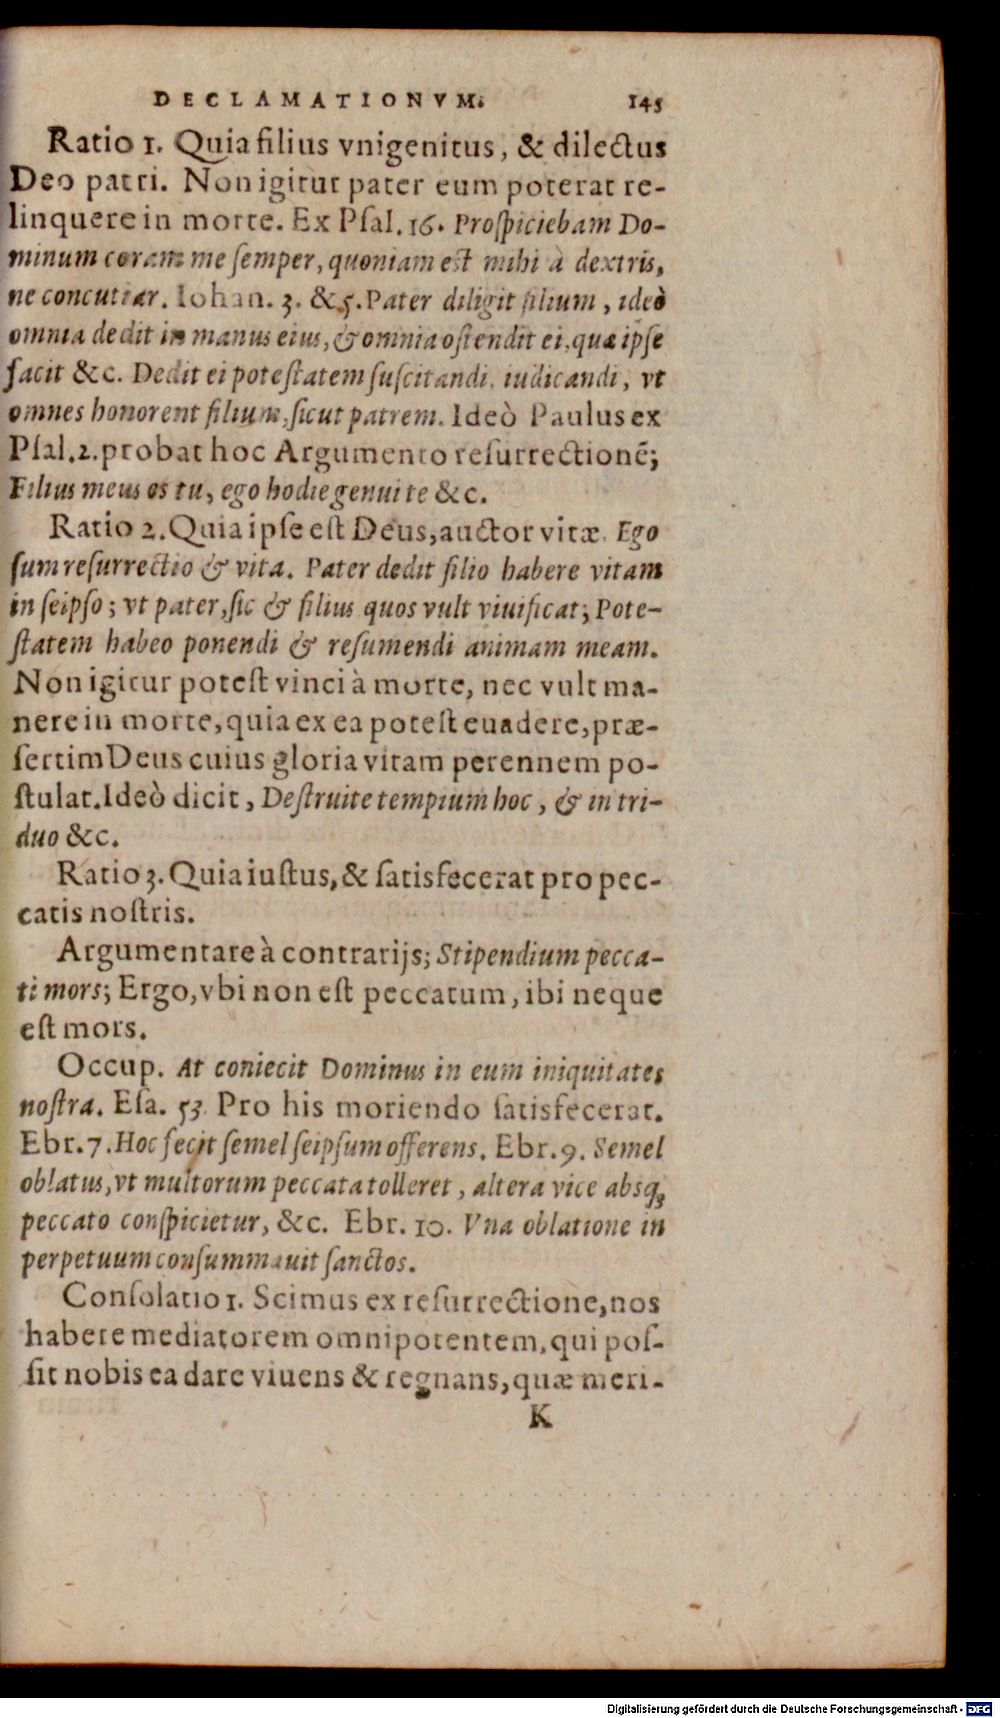 DECLAMATIONVM. 145
Ratio 1. Quia filius vnigenitus, & dilectus
Deo patri. Non igitur pater eum poterat re-
linquere in morte. Ex Pſal. 16. Proſpiciebam Do-
minum coram me ſemper, quoniam eſt mihi à dextris,
ne concutiar. Iohan. 3. & 5. Pater diligit filium, ideò
omnia dedit in manus eius, & omnia oſtendit ei, quæ ipſe
facit &c. Dedit ei poteſtatem ſuſcitandi, iudicandi, vt
omnes honorent filium, ſicut patrem. Ideò Paulus ex
Pſal. 2. probat hoc Argumento reſurrectionẽ;
Filius meus es tu, ego hodie genui te &c.
Ratio 2. Quia ipſe eſt Deus, auctor vitæ. Ego
ſum reſurrectio & vita. Pater dedit filio habere vitam
in ſeipſo; vt pater, ſic & filius quos vult viuificat; Pote-
ſtatem habeo ponendi & reſumendi animam meam.
Non igitur poteſt vinci à morte, nec vult ma-
nere in morte, quia ex ea poteſt euadere, præ-
ſertim Deus cuius gloria vitam perennem po-
ſtulat. Ideò dicit, Deſtruite templum hoc, & in tri-
duo &c.
Ratio 3. Quia iuſtus, & ſatisfecerat pro pec-
catis noſtris.
Argumentare à contrarijs; Stipendium pecca-
ti mors; Ergo, vbi non eſt peccatum, ibi neque
eſt mors.
Occup. At coniecit Dominus in eum iniquitates
noſtra. Eſa. 53. Pro his moriendo ſatisfecerat.
Ebr. 7. Hoc fecit ſemel ſeipſum offerens. Ebr. 9. Semel
oblatus, vt multorum peccata tolleret, altera vice absq;
peccato conſpicietur, &c. Ebr. 10. Vna oblatione in
perpetuum conſummauit ſanctos.
Conſolatio 1. Scimus ex reſurrectione, nos
habere mediatorem omnipotentem, qui poſ-
ſit nobis ea dare viuens & regnans, quæ meri-
K
Digitalisierung gefördert durch die Deutsche Forschungsgemeinschaft - DFG